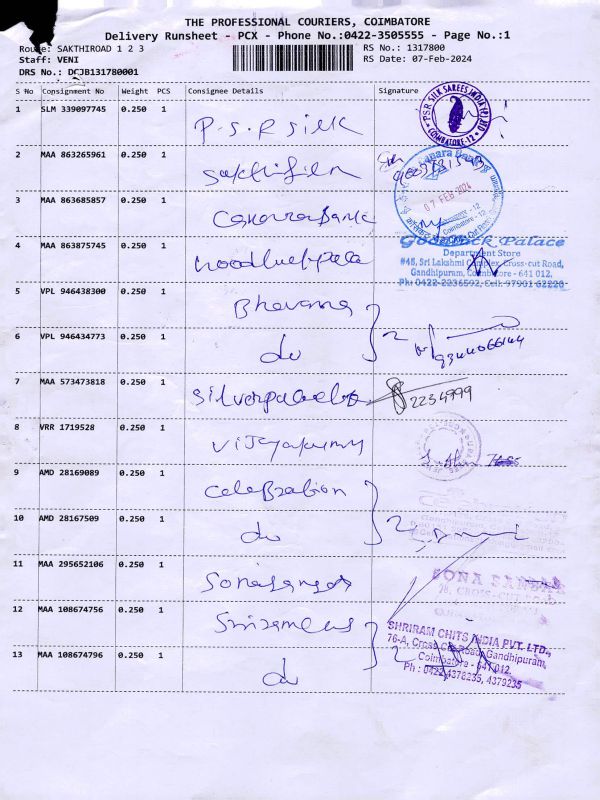 THE PROFESSIONAL COURIERS, COIMBATORE
Delivery Runsheet - PCX - Phone No.:0422-3505555 - Page No.:1
Route: SAKTHIROAD 1 2 3
RS No.: 1317800
Staff: VENI
RS Date: 07-Feb-2024
DRS No.: DCJB131780001
S No Consignment No Weight PCS Consignee Details Signature
1 SLM 339097745 0.250 1 P.S.R silk
PSR SILK SAREES INDIA (P) LTD
COIMBATORE-12
2 MAA 863265961 0.250 1
Canara Bank
07 FEB 2024
Coimbatore - 12
3 MAA 863685857 0.250 1 Canara Bank
4 MAA 863875745 0.250 1
Palace
Department Store
#48, Sri Lakshmi Complex, Cross-cut Road,
Gandhipuram, Coimbatore - 641 012.
Ph: 0422-2236592, Cell: 97901 62220
5 VPL 946438300 0.250 1 Bhavana
2
6 VPL 946434773 0.250 1 do
7 MAA 573473818 0.250 1
2234999
8 VRR 1719528 0.250 1
9 AMD 28169089 0.250 1 Celebration
2
10 AMD 28167509 0.250 1 do
11 MAA 295652106 0.250 1
SONA
12 MAA 108674756 0.250 1
SHRIRAM CHITS INDIA PVT. LTD.,
76-A, Cross Cut Road, Gandhipuram,
2
Coimbatore - 641 012.
Ph : 0422-4378235, 4379235
13 MAA 108674796 0.250 1 do